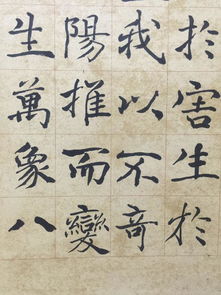 於害生於
我以不竒
陽推而變
生萬象八